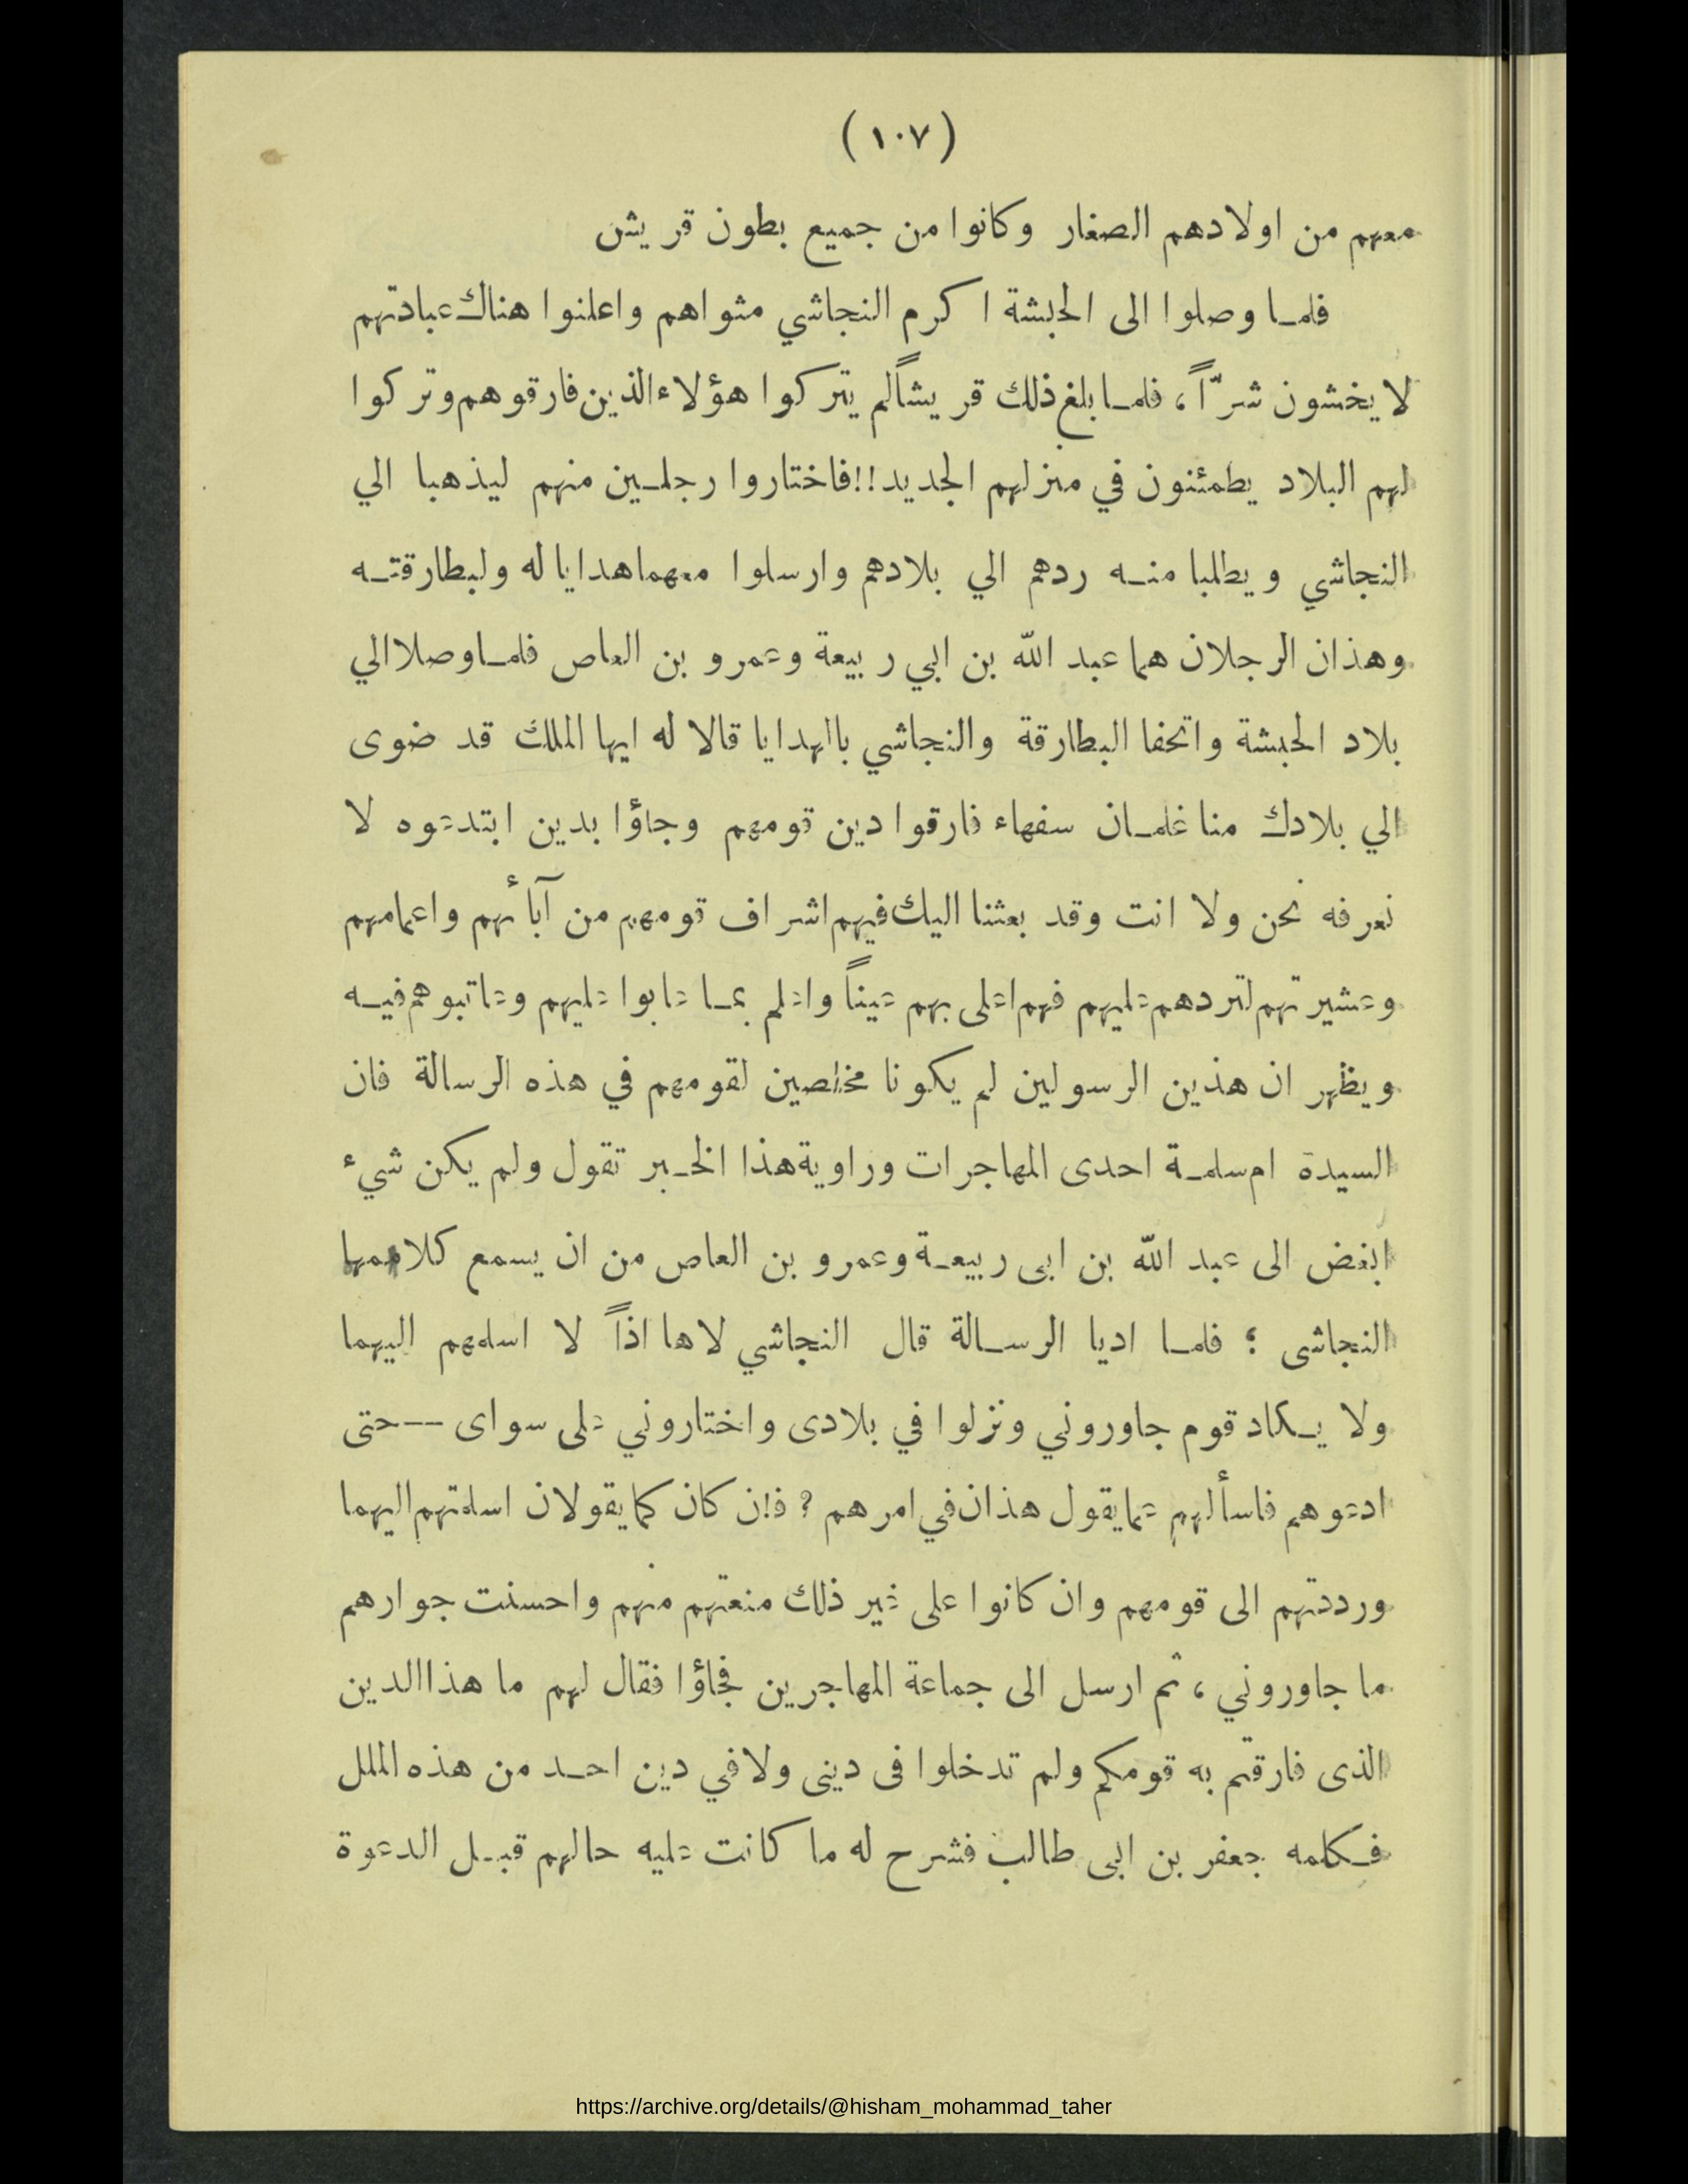 (١٠٧)
معهم من اولادهم الصغار وكانوا من جميع بطون قريش
فلما وصلوا الى الحبشة اكرم النجاشي مثواهم واعلنوا هناك عبادتهم
لا يخشون شرّاً، فلما بلغ ذلك قريشاً لم يتركوا هؤلاء الذين فارقوهم وتركوا
لهم البلاد يطمئنون في منزلهم الجديد!! فاختاروا رجلين منهم ليذهبا الي
النجاشي ويطلبا منه ردهم الي بلادهم وارسلوا معهما هدايا له ولبطارقته
وهذان الرجلان هما عبد الله بن ابي ربيعة وعمرو بن العاص فلما وصلا الي
بلاد الحبشة واتحفا البطارقة والنجاشي بالهدايا قالا له ايها الملك قد ضوى
الي بلادك منا غلمان سفهاء فارقوا دين قومهم وجاؤا بدين ابتدعوه لا
نعرفه نحن ولا انت وقد بعثنا اليك فيهم اشراف قومهم من آبائهم واعمامهم
وعشيرتهم لتردهم عليهم فهم اعلى بهم عيناً واعلم بما عابوا عليهم وعاتبوهم فيه
ويظهر ان هذين الرسولين لم يكونا مخلصين لقومهم في هذه الرسالة فان
السيدة ام سلمة احدى المهاجرات وراوية هذا الخبر تقول ولم يكن شيء
ابغض الى عبد الله بن ابى ربيعة وعمرو بن العاص من ان يسمع كلامهما
النجاشى ؛ فلما اديا الرسالة قال النجاشي لاها اذاً لا اسلمهم اليهما
ولا يكاد قوم جاوروني ونزلوا في بلادى واختاروني على سواى -- حتى
ادعوهم فاسألهم عما يقول هذان في امرهم ? فإن كان كما يقولان اسلمتهم اليهما
ورددتهم الى قومهم وان كانوا على غير ذلك منعتهم منهم واحسنت جوارهم
ما جاوروني ، ثم ارسل الى جماعة المهاجرين فجاؤا فقال لهم ما هذا الدين
الذى فارقتم به قومكم ولم تدخلوا فى دينى ولا في دين احد من هذه الملل
فكلمه جعفر بن ابى طالب فشرح له ما كانت عليه حالهم قبل الدعوة
https://archive.org/details/@hisham_mohammad_taher